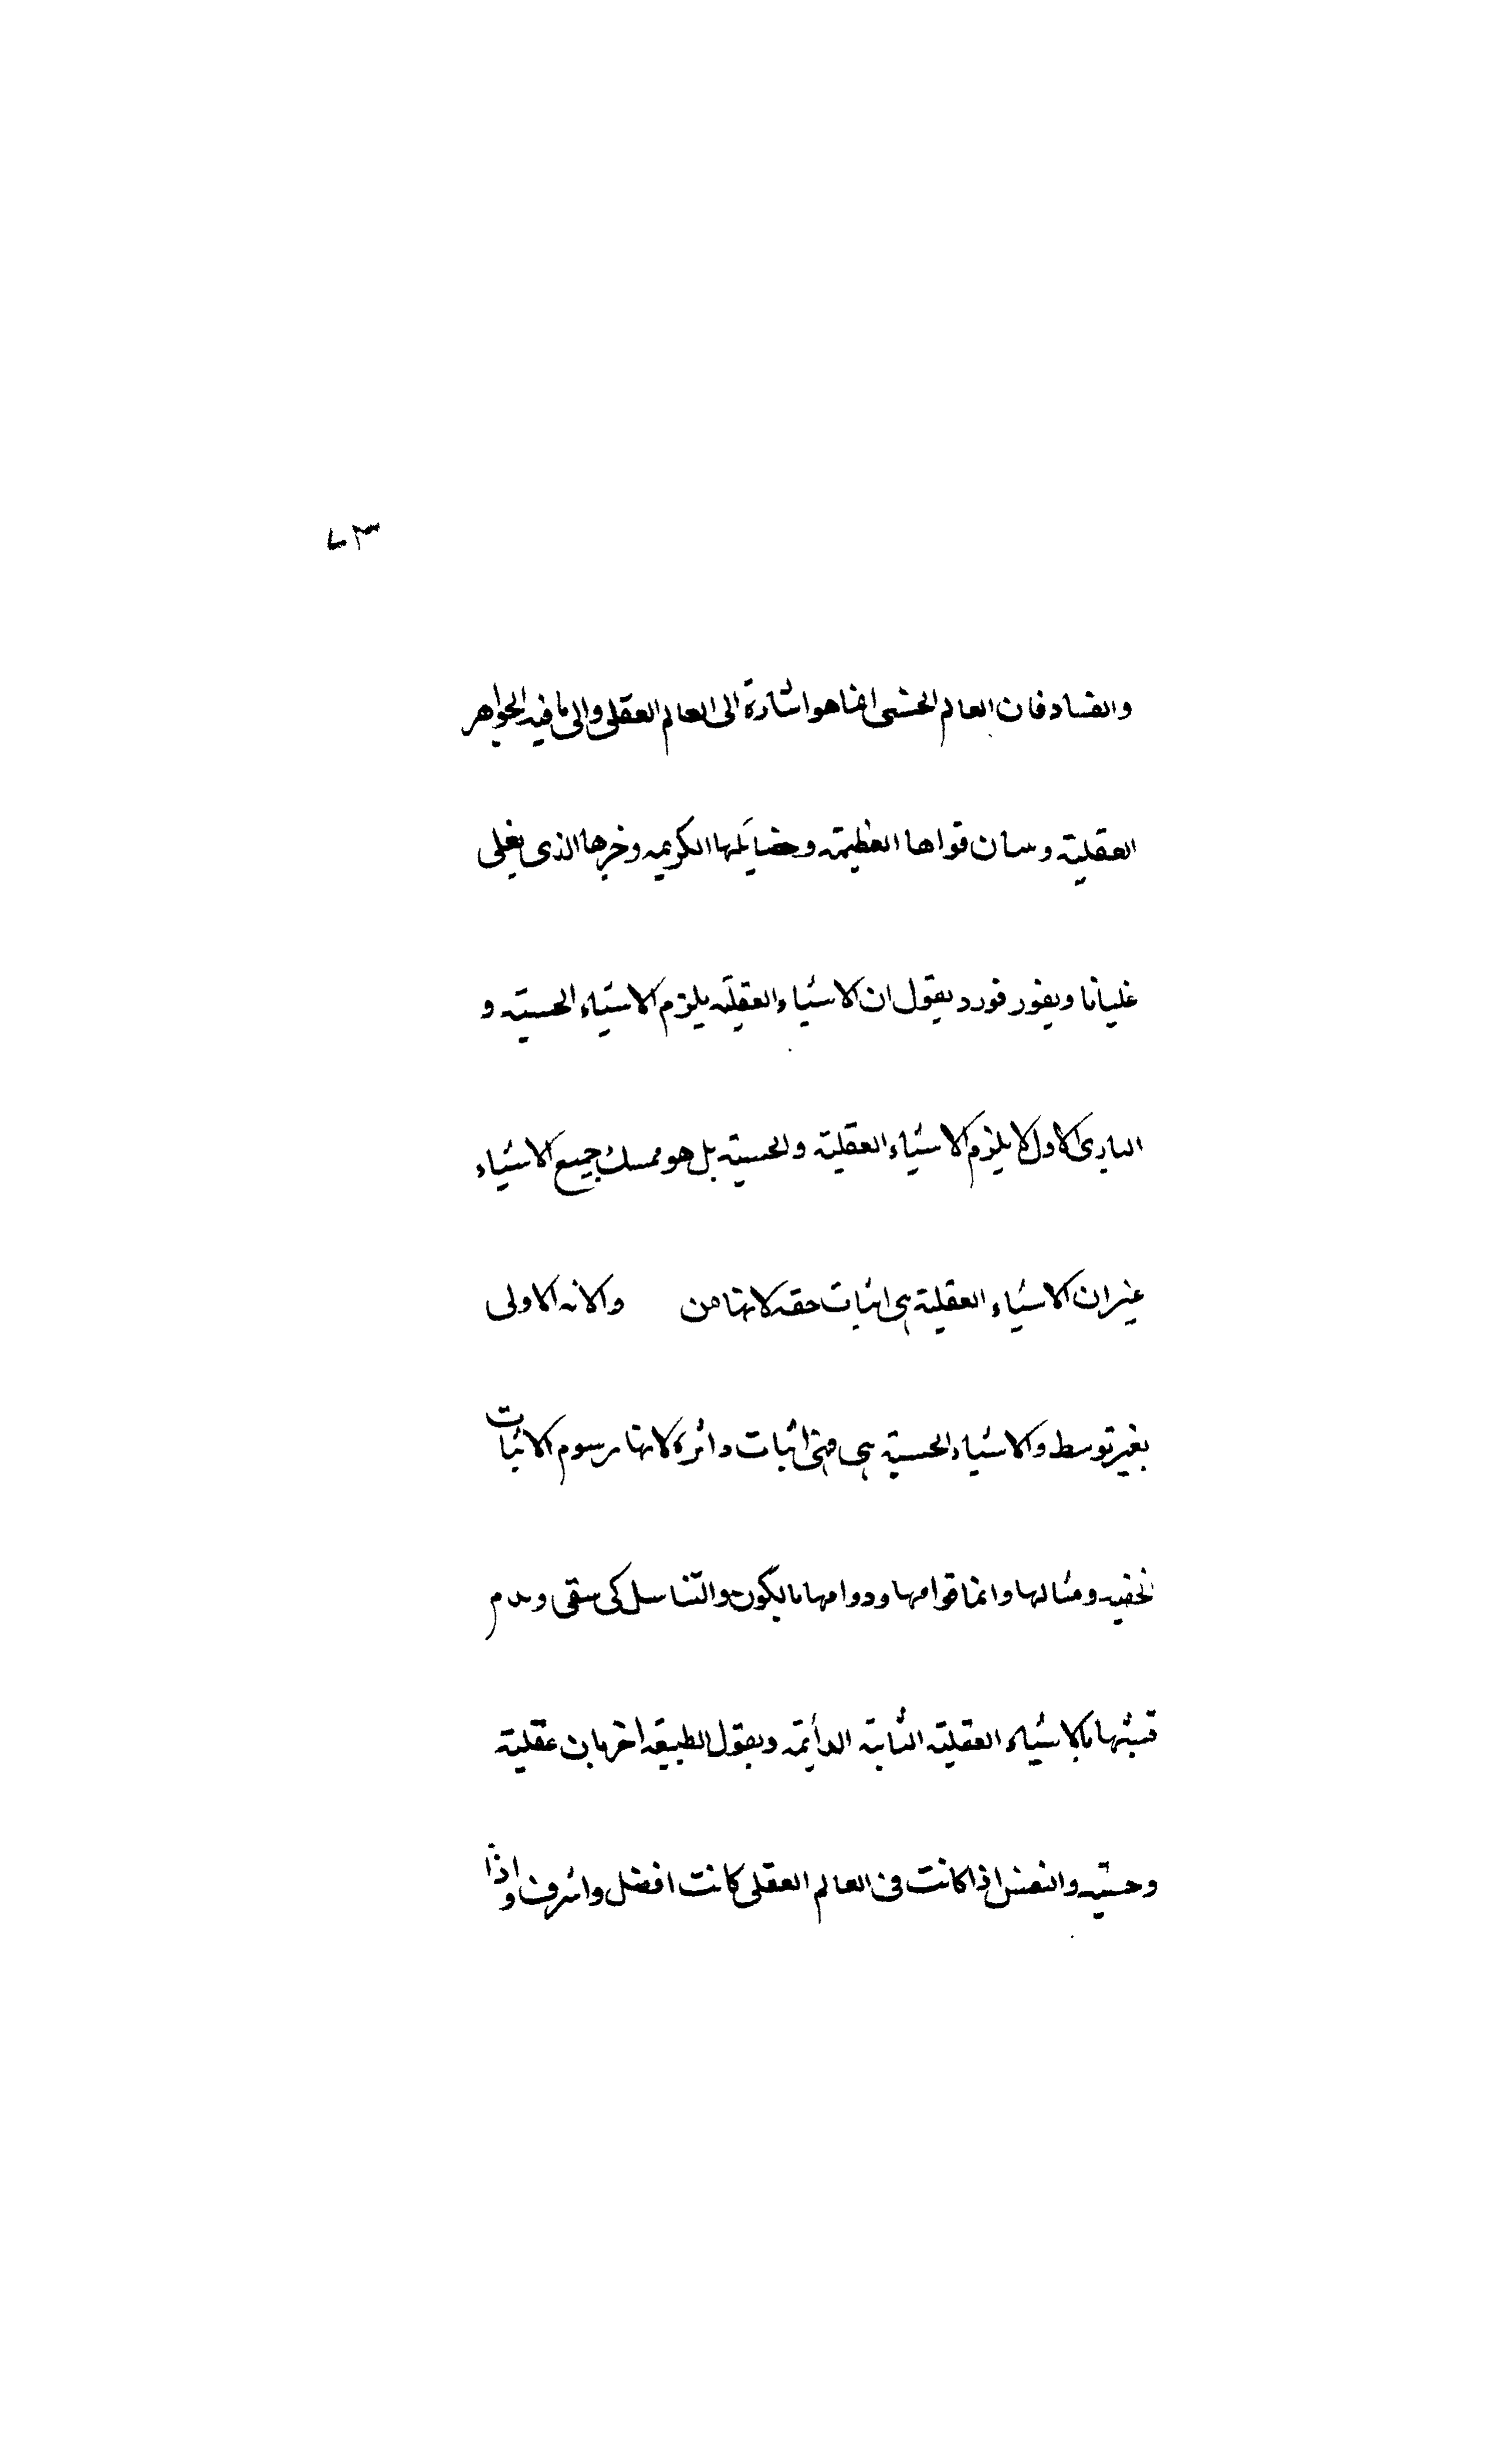 ٧٣
والفساد فان العالم الحسى انما هو اشارة الى العالم العقلى والى ما فيه الجواهر
العقلية وسان قواها العظيمة وفضايلها الكريمه وخيرها الذى يغلى
غليانا ويفور فورد يقول ان الاشياء العقليه يلزم الاشياء الحسيه و
البارى الاول لا يلزم الاشياء العقلية والحسية بل هو ممسك جميع الاشياء
غير ان الاشياء العقلية هى انيات حقه لانها من والانه الاولى
بغير توسط والاشياء الحسية هى فهى انيات داثرة لانها رسوم الانيات
الخفيه ومثالها وانما قوامها ودوامها بالكون والتناسل كى سقى وىدم
تشبها بالاشياء العقلية الثابتة الدائمة ويقول الطبيعه اخربان عقلية
وحسيه والنفس اذا كانت فى العالم العقلى كانت افضل واشرف واذا